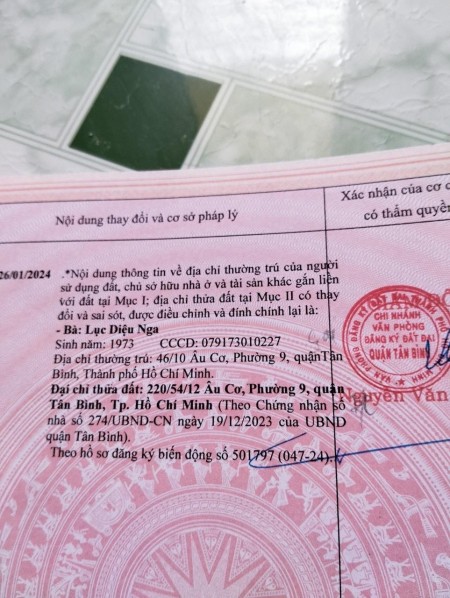 Nội dung thay đổi và cơ sở pháp lý
Xác nhận của cơ
có thẩm quyền
26/01/2024
.*Nội dung thông tin về địa chỉ thường trú của người
sử dụng đất, chủ sở hữu nhà ở và tài sản khác gắn liền
với đất tại Mục I; địa chỉ thửa đất tại Mục II có thay
đổi và sai sót, được điều chỉnh và đính chính lại là:
- Bà: Lục Diệu Nga
Sinh năm: 1973 CCCD: 079173010227
Địa chỉ thường trú: 46/10 Âu Cơ, Phường 9, quậnTân
Bình, Thành phố Hồ Chí Minh.
Đại chỉ thửa đất: 220/54/12 Âu Cơ, Phường 9, quận
Tân Bình, Tp. Hồ Chí Minh (Theo Chứng nhận số
nhà số 274/UBND-CN ngày 19/12/2023 của UBND
quận Tân Bình).
Theo hồ sơ đăng ký biến động số 501797 (047-24).
CHI NHÁNH
VĂN PHÒNG
ĐĂNG KÝ ĐẤT ĐAI
QUẬN TÂN BÌNH
Nguyễn Văn